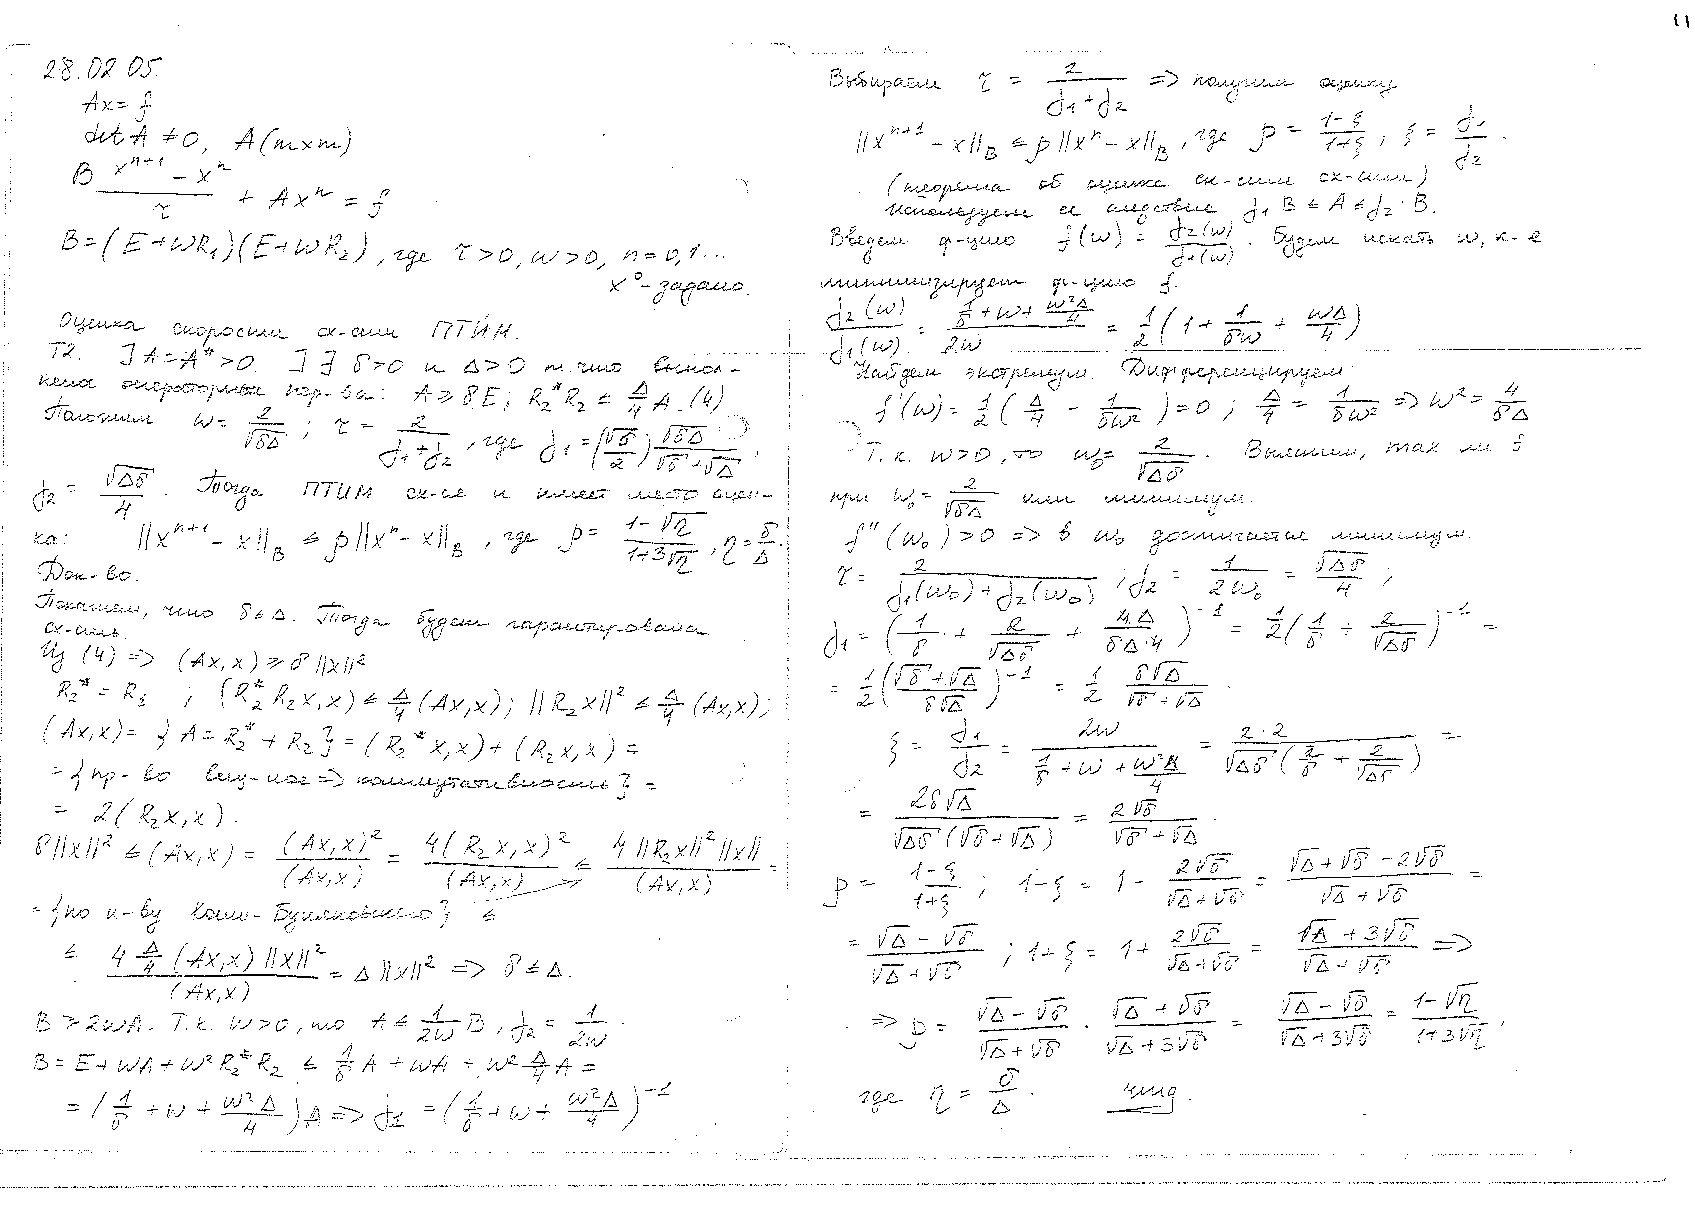 28.02 05.
Ax = f
det A ≠ 0, A(m×m)
B (x^{n+1} - x^n)/τ + Ax^n = f
B = (E+ωR₁)(E+ωR₂), где τ>0, ω>0, n=0,1...
x⁰ - задано.
Оценка скорости сх-сти ПТИМ.
Т2. ∃ A=A*>0. ∃ ∃ δ>0 и Δ>0 т.что выпол-
нена операторные нер-ва: A ≥ δE; R₂*R₂ ≤ Δ/4 A. (4)
Положим ω = 2/√(δΔ); τ = 2/(γ₁+γ₂), где γ₁ = (√δ/2) √(δΔ)/(√δ+√Δ),
γ₂ = √(Δδ)/4. Тогда ПТИМ сх-ся и имеет место оцен-
ка: ||x^{n+1} - x||_B ≤ ρ||x^n - x||_B, где ρ = (1-√η)/(1+3√η), η = δ/Δ.
Док-во.
Покажем, что δ ≤ Δ. Тогда будет гарантирована
сх-сть.
Из (4) => (Ax,x) ≥ δ||x||²
R₂* = R₁; (R₂*R₂x,x) ≤ Δ/4 (Ax,x); ||R₂x||² ≤ Δ/4 (Ax,x);
(Ax,x) = {A = R₂*+R₂} = (R₂*x,x) + (R₂x,x) =
= {пр-во => коммутативность} =
= 2(R₂x,x).
δ||x||² ≤ (Ax,x) = (Ax,x)²/(Ax,x) = 4(R₂x,x)²/(Ax,x) ≤ 4||R₂x||²||x||/(Ax,x) =
= {по н-ву Коши-Буняковского} ≤
≤ 4 Δ/4 (Ax,x)||x||²/(Ax,x) = Δ||x||² => δ ≤ Δ.
B ≥ 2ωA. Т.к. ω>0, то A ≤ 1/(2ω) B, γ₂ = 1/(2ω).
B = E+ωA+ω²R₂*R₂ ≤ 1/δ A + ωA + ω² Δ/4 A =
= (1/δ + ω + ω²Δ/4)A => γ₁ = (1/δ + ω + ω²Δ/4)^{-1}
11
Выбираем τ = 2/(γ₁+γ₂) => получим оценку
||x^{n+1} - x||_B ≤ ρ||x^n - x||_B, где ρ = (1-ξ)/(1+ξ); ξ = γ₁/γ₂.
(теорема об оценке ск-сти сх-сти)
Используем ее следствие γ₁B ≤ A ≤ γ₂·B.
Введем ф-цию f(ω) = γ₂(ω)/γ₁(ω). Будем искать ω, к-е
минимизирует ф-цию f.
γ₂(ω)/γ₁(ω) = (1/δ+ω+ω²Δ/4)/(2ω) = 1/2(1 + 1/(δω) + ωΔ/4)
Найдем экстремум. Дифференцируем
f'(ω) = 1/2(Δ/4 - 1/(δω²)) = 0; Δ/4 = 1/(δω²) => ω² = 4/(δΔ)
Т.к. ω>0, то ω₀ = 2/√(Δδ). Выясним, max ли f
при ω₀ = 2/√(δΔ) или минимум.
f''(ω₀) > 0 => в ω₀ достигается минимум.
τ = 2/(γ₁(ω₀)+γ₂(ω₀)); γ₂ = 1/(2ω₀) = √(Δδ)/4;
γ₁ = (1/δ + 2/√(Δδ) + 4Δ/(δΔ·4))^{-1} = 1/2(1/δ + 2/√(Δδ))^{-1} =
= 1/2((√δ+√Δ)/(δ√Δ))^{-1} = 1/2 δ√Δ/(√δ+√Δ).
ξ = γ₁/γ₂ = 2ω/(1/δ+ω+ω²Δ/4) = 2·2/(√(Δδ)(2/δ + 2/√(Δδ))) =
= 2δ√Δ/(√(Δδ)(√δ+√Δ)) = 2√δ/(√δ+√Δ).
ρ = (1-ξ)/(1+ξ); 1-ξ = 1 - 2√δ/(√Δ+√δ) = (√Δ+√δ-2√δ)/(√Δ+√δ) =
= (√Δ-√δ)/(√Δ+√δ); 1+ξ = 1+ 2√δ/(√Δ+√δ) = (√Δ+3√δ)/(√Δ+√δ) =>
=> ρ = (√Δ-√δ)/(√Δ+√δ) · (√Δ+√δ)/(√Δ+3√δ) = (√Δ-√δ)/(√Δ+3√δ) = (1-√η)/(1+3√η),
где η = δ/Δ. чтд.